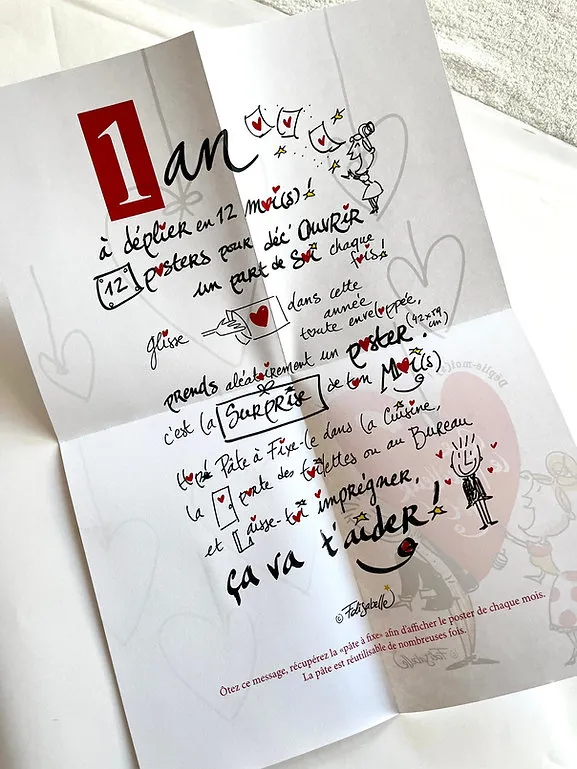 1 an
à déplier en 12 moi(s)!
12 posters pour déc'OUVRIR
un part de Soi chaque
fois!
glisse dans cette
année
toute enveloppée,
prends aléatoirement un poster. (42x59
cm)
c'est la SURPRISE de ton Moi(s)
Hop! Pâte à Fixe-le dans la Cuisine,
la porte des toilettes ou au Bureau
et Laisse-toi imprégner,
ça va t'aider!
© Falisabelle
Ôtez ce message, récupérez la «pâte à fixe» afin d'afficher le poster de chaque mois.
La pâte est réutilisable de nombreuses fois.